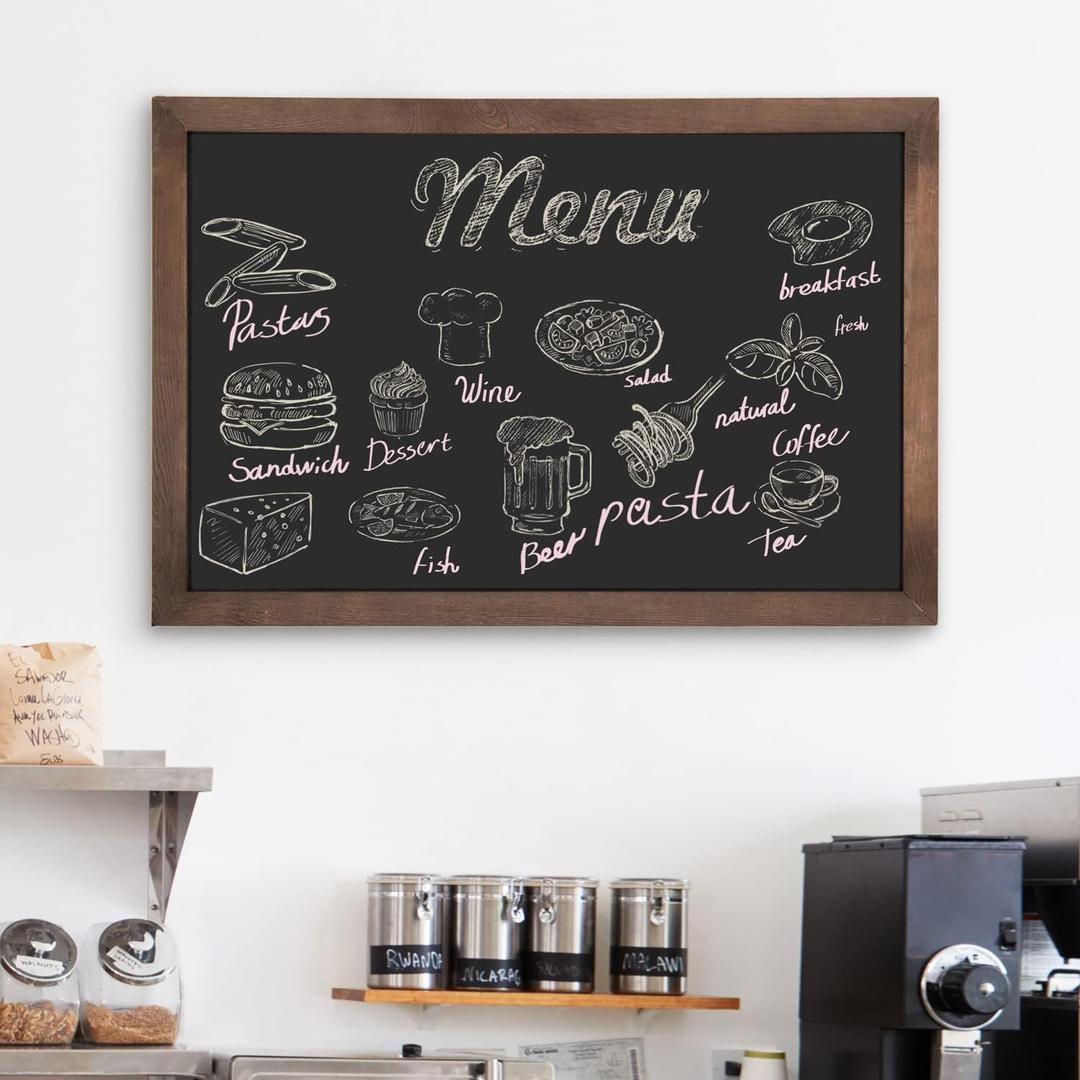 Menu
breakfast
Pastas
fresh
Wine
salad
natural
Coffee
Sandwich
Dessert
pasta
Tea
fish
Beer
SALVADOR
WASHED
5LBS
WALNUTS
RWANDA
NICARAG
MALAWI